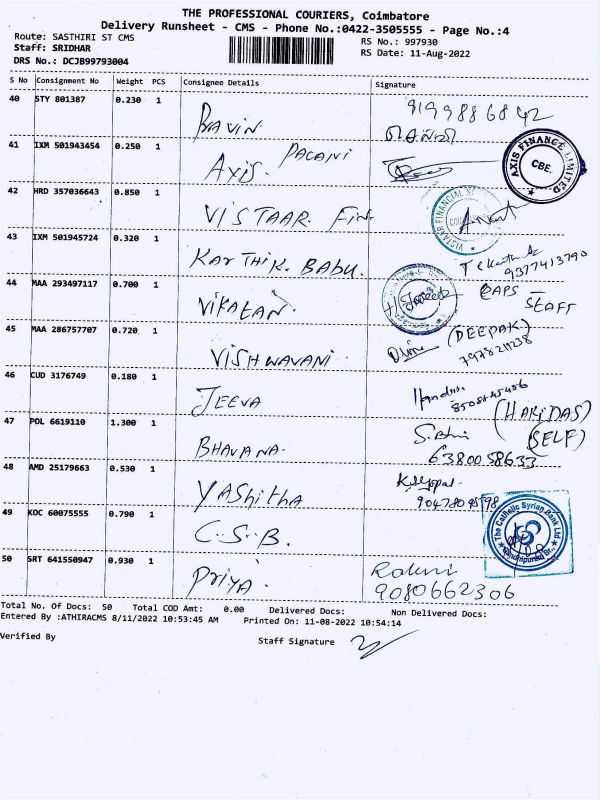 THE PROFESSIONAL COURIERS, Coimbatore
Delivery Runsheet - CMS - Phone No.:0422-3505555 - Page No.:4
Route: SASTHIRI ST CMS
RS No.: 997930
Staff: SRIDHAR
RS Date: 11-Aug-2022
DRS No.: DCJB99793004
S No Consignment No Weight PCS Consignee Details Signature
40 STY 801387 0.230 1 PRAVIN 9199886842
41 IXM 501943454 0.250 1 PALANI AXIS. AXIS FINANCE LIMITED CBE.
42 HRD 357036643 0.850 1 VISTAAR FIN
43 IXM 501945724 0.320 1 KARTHIK. BABU. 9377413790
44 MAA 293497117 0.700 1 VIKATAN CAPS STAFF
45 MAA 286757707 0.720 1 VISHWAVANI (DEEPAK) 7978211238
46 CUD 3176749 0.180 1 JEEVA
47 POL 6619110 1.300 1 BHAVANA. (HARIDAS) (SELF) 6380058633
48 AMD 25179663 0.530 1 YAShitha
49 KOC 60075555 0.790 1 C.S.B. The Catholic Syrian Bank Ltd
50 SRT 641550947 0.930 1 PriYA 9080662306
Total No. Of Docs: 50 Total COD Amt: 0.00 Delivered Docs: Non Delivered Docs:
Entered By :ATHIRACMS 8/11/2022 10:53:45 AM Printed On: 11-08-2022 10:54:14
Verified By Staff Signature